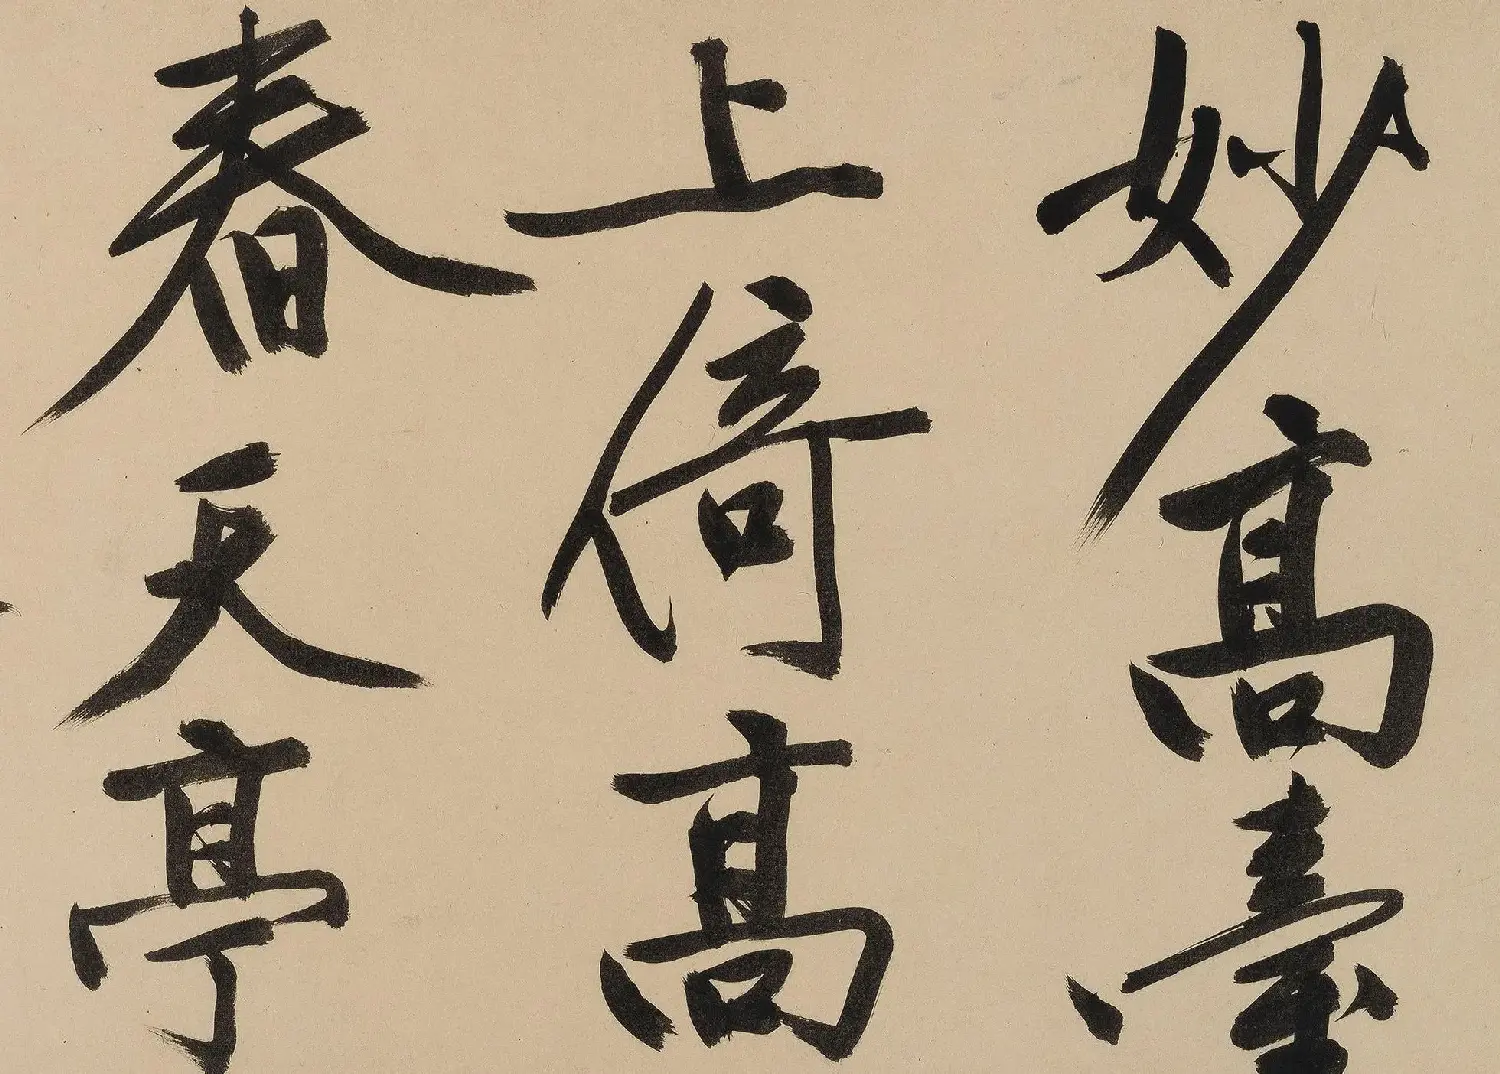 妙高臺
上倚高
春天亭